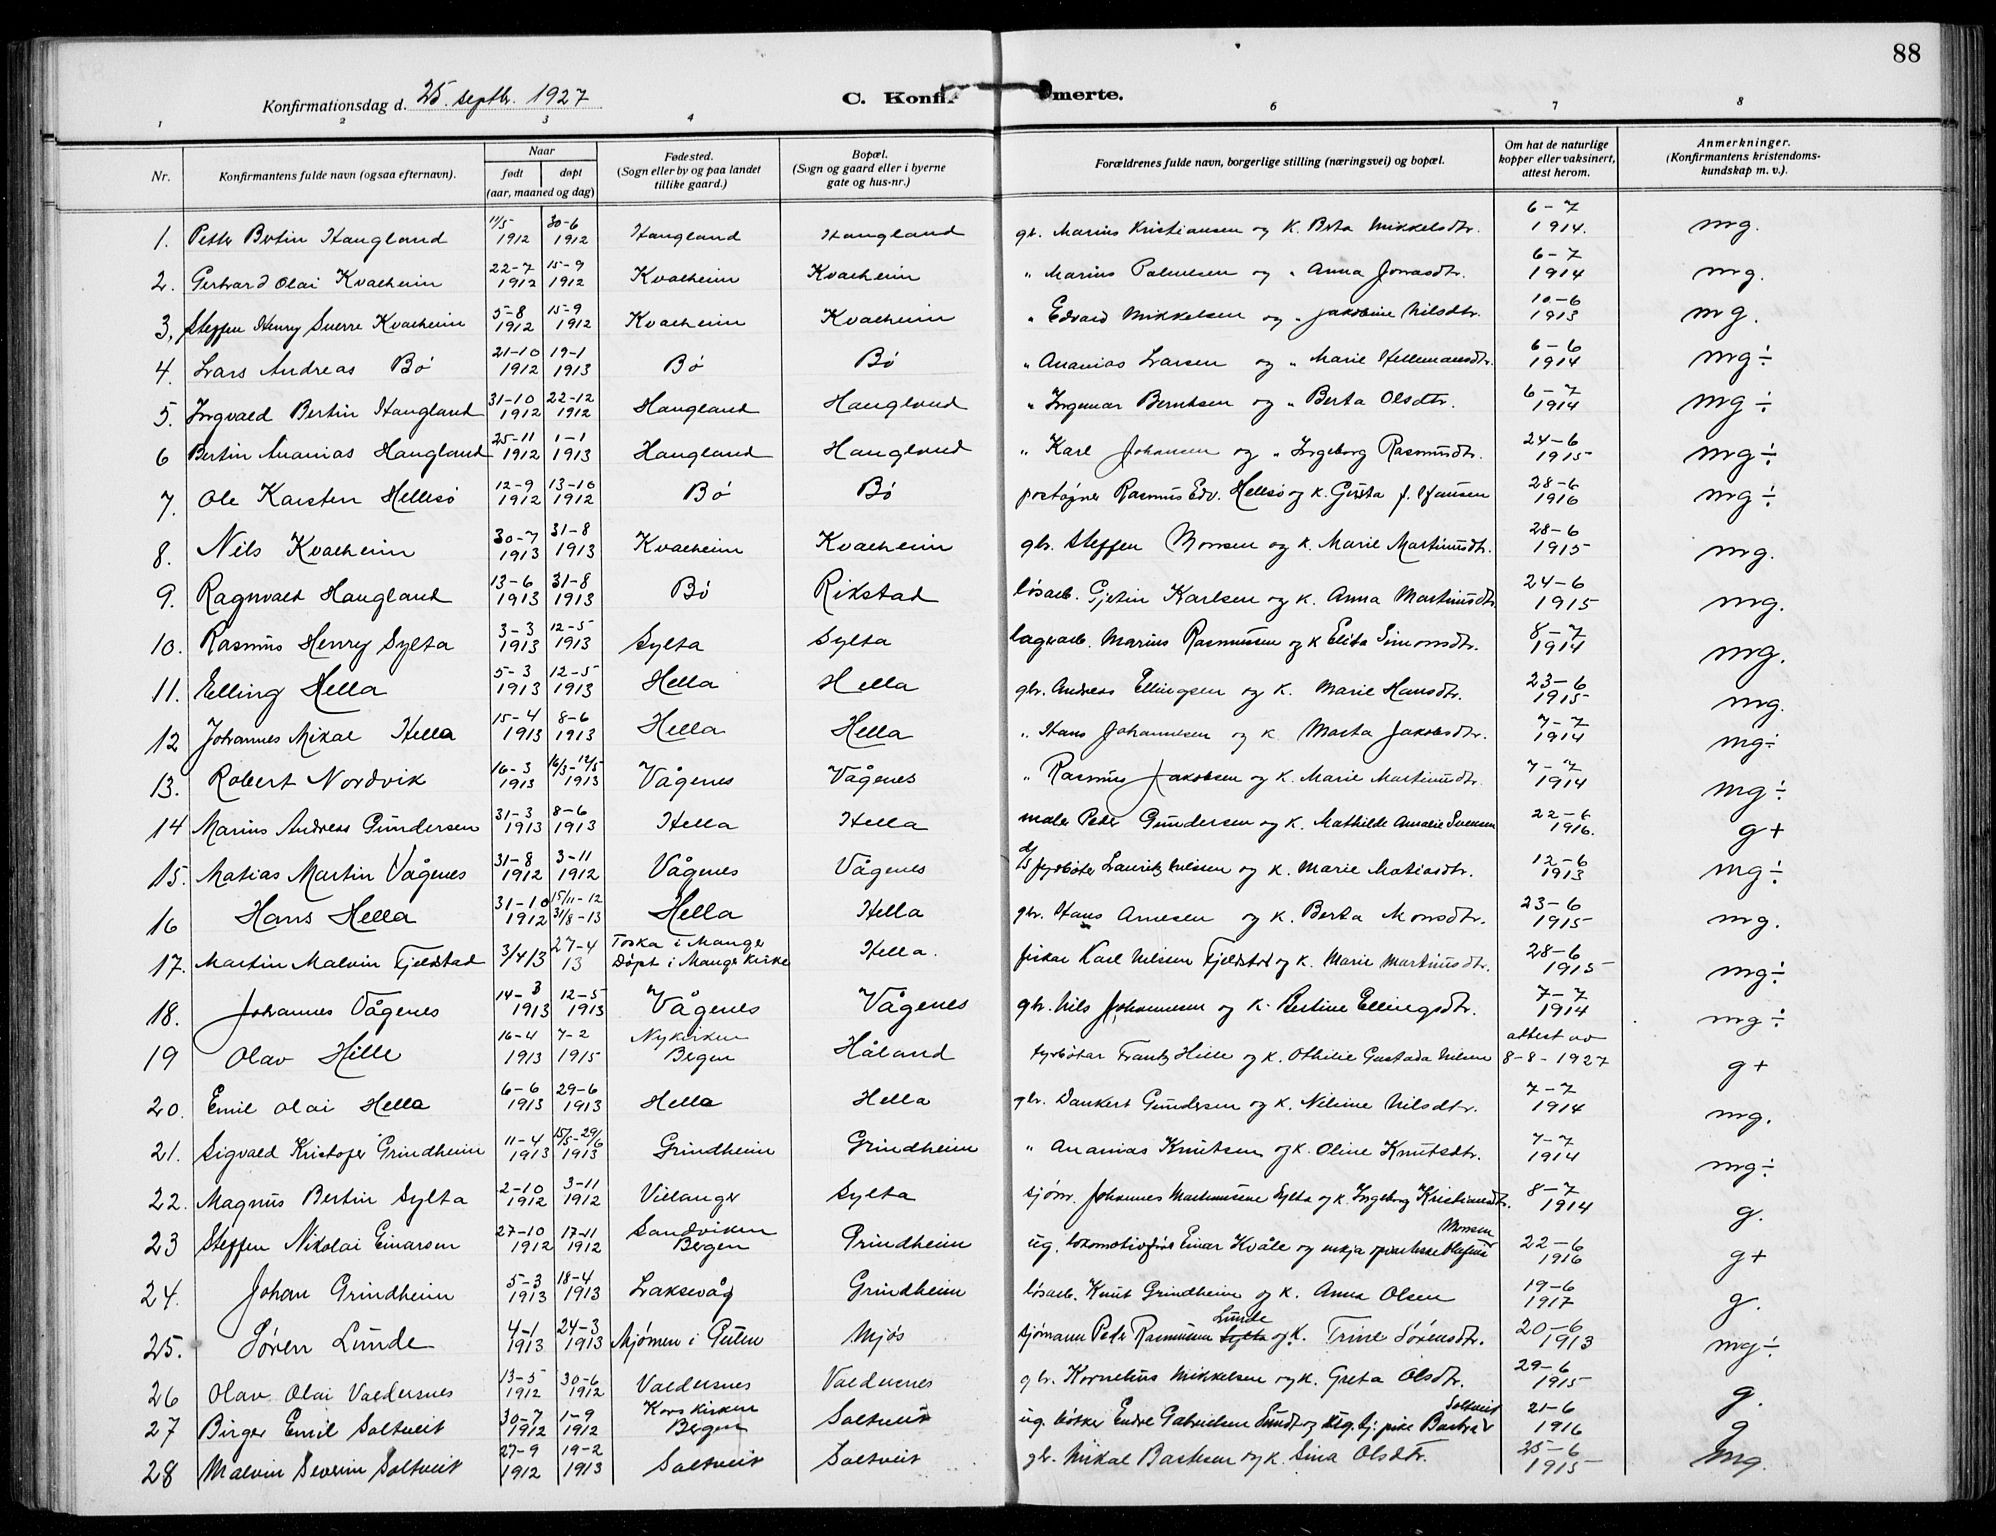 88
Konfirmationsdag d. 25. septbr. 1927
C. Konfi merte.
1 2 3 4 6 7 8
Nr. Konfirmantens fulde navn (ogsaa efternavn). Naar født døpt (aar, maaned og dag) Fødested. (Sogn eller by og paa landet tillike gaard.) Bopæl. (Sogn og gaard eller i byerne gate og hus-nr.) Forældrenes fulde navn, borgerlige stilling (næringsvei) og bopæl. Om hat de naturlige kopper eller vaksinert, attest herom. Anmerkninger. (Konfirmantens kristendomskundskap m. v.).
1. Petter Bertin Haugland 11/5 1912 30-6 1912 Haugland Haugland gbr. Marius Kristiansen og K. Brta Mikkelsdtr. 6-7 1914. mg.
2. Gerhard Olai Kvalheim 22-7 1912 15-9 1912 Kvalheim Kvalheim " Marius Palmesen og " Anna Jonasdtr. 6-7 1914 mg.
3. Steffen Henry Sverre Kvalheim 5-8 1912 15-9 1912 Kvalheim Kvalheim " Edvard Mikkelsen og " Jakobine Nilsdtr. 10-6 1913 mg.
4. Lars Andreas Bö 21-10 1912 19-1 1913 Bö Bö " Ananias Larsen og " Marie Hellemansdtr. 6-6 1914 mg÷
5. Ingvald Bertin Haugland 31-10 1912 22-12 1912 Haugland Haugland " Ingemar Berntsen og " Berta Olsdtr. 6-7 1914 mg÷
6 Bertin Ananias Haugland 25-11 1912 1-1 1913 Haugland Haugland " Karl Johansen og " Ingeborg Rasmusdtr. 24-6 1915 mg÷
7. Ole Karsten Hellesö 12-9 1912 13-10 1912 Bö Bö Rasmus Edv. Hellesö og K. f. 28-6 1916 mg÷
8. Nils Kvalheim 30-7 1913 31-8 1913 Kvalheim Kvalheim gbr. Steffen Monsen og K. Marie Martinusdtr. 28-6 1915 mg.
9. Ragnvald Haugland 13-6 1913 31-8 1913 Bö Rikstad løsarb. Gjetin Karlsen og K. Anna Martinusdtr 24-6 1915 mg.
10. Rasmus Henry Sylta 3-3 1913 12-5 1913 Sylta Sylta lagerarb. Marius Rasmussen og K Elita Simonsdtr. 8-7 1914 mg.
11. Elling Hella 5-3 1913 12-5 1913 Hella Hella gbr. Andreas Ellingsen og K. Marie Hansdtr. 23-6 1915 mg.
12 Johannes Mikal Hella 15-4 1913 8-6 1913 Hella Hella " Hans Johannesen og K. Marta Jakobsdtr. 7-7 1914 mg÷
13. Robert Nordvik 16-3 1913 16/3-12/5 1913 Vågenes Vågenes " Rasmus Jakobsen og K. Marie Martinusdtr. 7-7 1914 mg÷
14 Marius Andreas Gundersen 31-3 1913 8-6 1913 Hella Hella maler Peder Gundersen og K. Mathilde Amalie Svensen 22-6 1916. g+
15. Matias Martin Vågenes 31-8 1912 3-11 1912 Vågenes Vågenes fyrböter Lauritz Nilsen og K. Marie Matiasdtr. 12-6 1913 mg÷
16 Hans Hella 31-10 1912 15/11-12 31/8-13 Hella Hella gbr. Hans Arnesen og K. Berta Monsdtr. 23-6 1915 mg.
17. Martin Malvin Fjeldstad 3/4 13 27-4 13 Toska i Manger Döpt i Manger kirke Hella. fisker Karl Nilsen Fjeldstad og K. Marie Martinusdtr. 28-6 1915 mg÷
18. Johannes Vågenes 14-3 1913 12-5 1913 Vågenes Vågenes gbr. Nils Johannesen og K. Bertine Ellingsdtr. 7-7 1914 mg÷
19 Olav Hille 16-4 1913 7-2 1915 Nykirken Bergen Håland fyrbötar Frantz Hille og K. Othilie Gustava Nilsen attest av 8-8-1927 g+
20. Emil Olai Hella 6-6 1913 29-6 1913 Hella Hella gbr. Dankert Gundersen og K. Nilsine Nilsdtr. 7-7 1914 mg.
21. Sigvald Kristofer Grindheim 11-4 1913 15/5-29/6 1913 Grindheim Grindheim " Ananias Knutsen og K. Oline Knutsdtr. 7-7 1914 mg÷
22. Magnus Bertin Sylta 2-10 1912 3-11 1912 Villanger Sylta sjöm. Johannes Martinussene Sylta og K. Ingeborg Kristiansdtr. 8-7 1914 g.
23 Steffen Nikolai Einarsen 27-10 1912 17-11 1912 Sandviken Bergen Grindheim ug. lokomotivför Einar Kvåle og Monsen 22-6 1916 g+
24. Johan Grindheim 5-3 1913 18-4 1913 Laksevåg Grindheim løsarb. Knut Grindheim og K. Anna Olsen 19-6 1917 g.
25. Sören Lunde 4-1 1913 24-3 1913 Mjömen i Gulen Mjös sjömann Peder Rasmussen Sylta Lunde og K. Trine Sörensdtr. 20-6 1913 mg÷
26 Olav Olai Valdersnes 13-5 1912 30-6 1912 Valdersnes Valdersnes gbr. Kornelius Mikkelsen og K. Greta Olsdtr. 29-6 1915 g.
27 Birger Emil Soltveit 30-7 1912 1-9 1912 Korskirken Bergen Soltveit ug. bötker Endre Gabrielsen Sundt og ug. tj. pike Barbra Soltveit 21-6 1916 g
28 Malvin Severin Soltveit 27-9 1912 19-2 1913 Soltveit Soltveit gbr. Mikal Bastesen og K. Sina Olsdtr. 25-6 1915 mg.